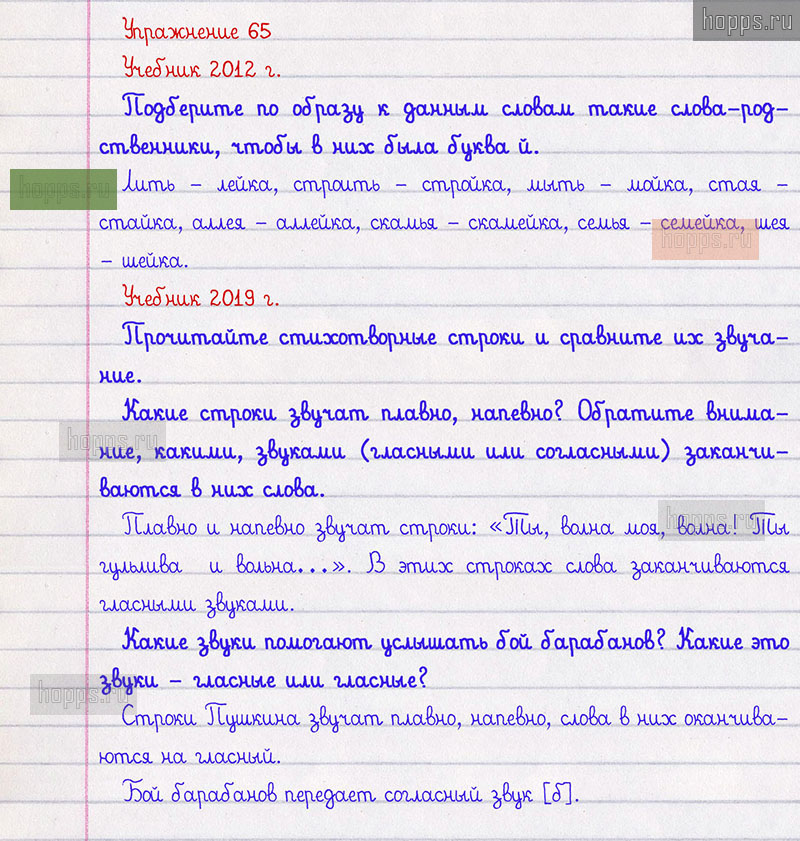 hopps.ru
Упражнение 65
Учебник 2012 г.
Подберите по образу к данным словам такие слова-род-
ственники, чтобы в них была буква й.
hopps.ru
Лить – лейка, строить – стройка, мыть – мойка, стая –
стайка, аллея – аллейка, скамья – скамейка, семья – семейка, шея
hopps.ru
– шейка.
Учебник 2019 г.
Прочитайте стихотворные строки и сравните их звуча-
ние.
Какие строки звучат плавно, напевно? Обратите внима-
hopps.ru
ние, какими, звуками (гласными или согласными) заканчи-
ваются в них слова.
Плавно и напевно звучат строки: «Ты, волна моя, волна! Ты
hopps.ru
гульлива и вольна...». В этих строках слова заканчиваются
гласными звуками.
Какие звуки помогают услышать бой барабанов? Какие это
звуки – гласные или гласные?
hopps.ru
Строки Пушкина звучат плавно, напевно, слова в них оканчива-
ются на гласный.
Бой барабанов передает согласный звук [б].